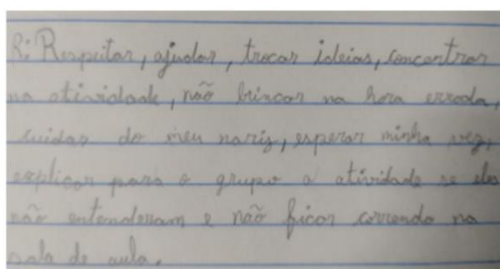 R: Respeitar, ajudar, trocar ideias, concentrar
na atividade, não brincar na hora errada,
cuidar do meu nariz, esperar minha vez,
explicar para o grupo a atividade se eles
não entenderam e não ficar correndo na
sala de aula.